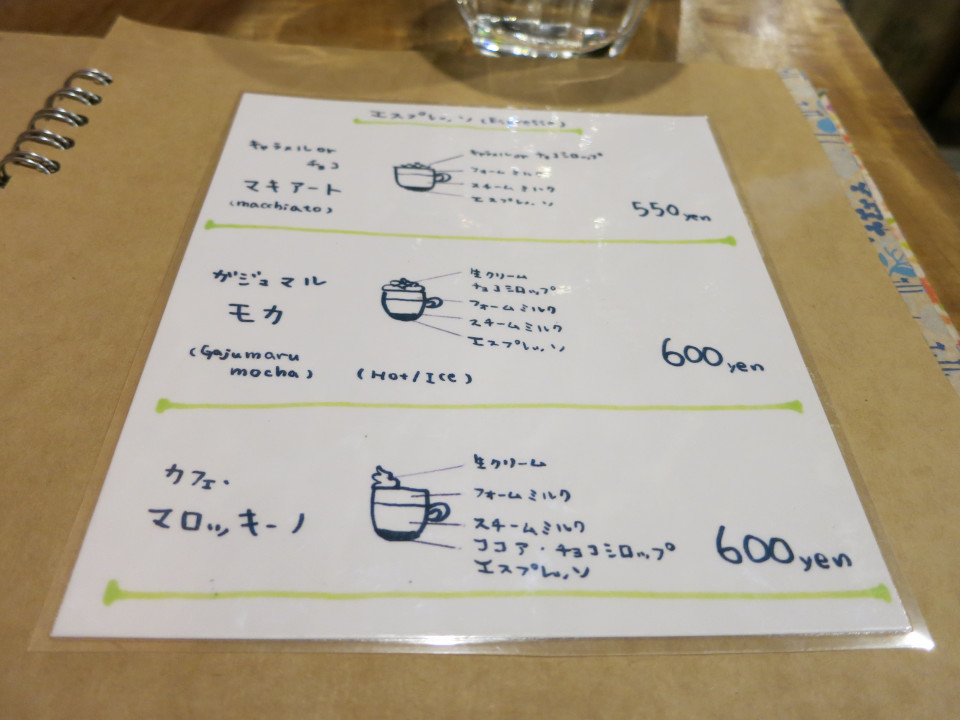 エスプレッソ (Espresso)
キャラメル or
チョコ
マキアート
(macchiato)
キャラメル or チョコシロップ
フォームミルク
スチームミルク
エスプレッソ
550yen
ガジュマル
モカ
(Gajumaru
mocha)
(Hot/Ice)
生クリーム
チョコシロップ
フォームミルク
スチームミルク
エスプレッソ
600yen
カフェ・
マロッキーノ
生クリーム
フォームミルク
スチームミルク
ココア・チョコシロップ
エスプレッソ
600yen